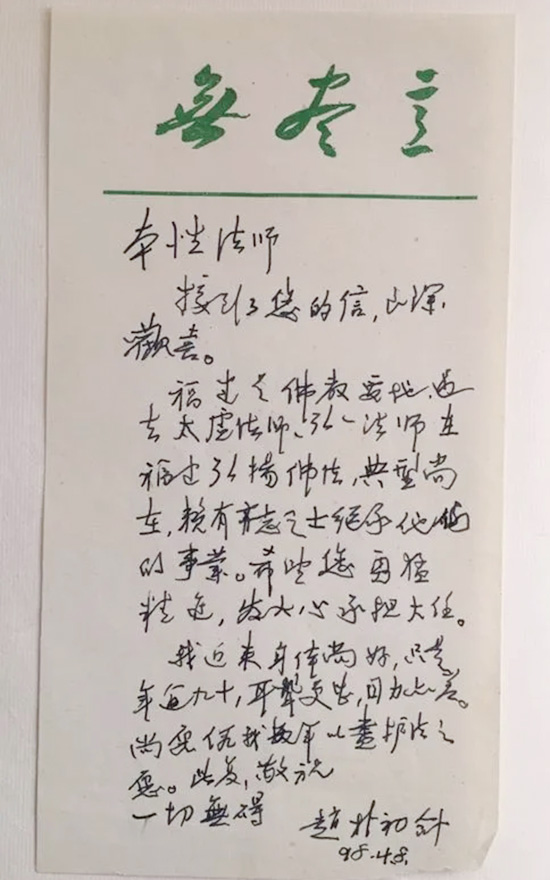 無盡意
本性法师
接到了您的信,至深
歡喜。
福建是佛教要地,过
去太虚法师、弘一法师在
福建弘扬佛法,典型尚
在,赖有有志之士继承他们
的事業。希望您勇猛
精进,发大心承担大任。
我近来身体尚好,只是
年近九十,耳聋更甚,目力亦差。
尚愿假我数年以盡护法之
愿。此复,敬祝
一切無碍
趙朴初
98.4.8.